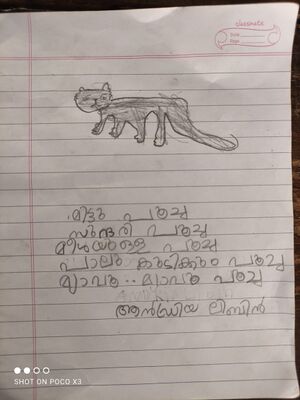 classmate
Date
Page
മിട്ടു പൂച്ച
സുന്ദരി പൂച്ച
മീശയുള്ള പൂച്ച
പാലു കുടിക്കും പൂച്ച
മ്യാവൂ.. മ്യാവൂ പൂച്ച
ആൻഡ്രിയ ലിബിൻ
SHOT ON POCO X3